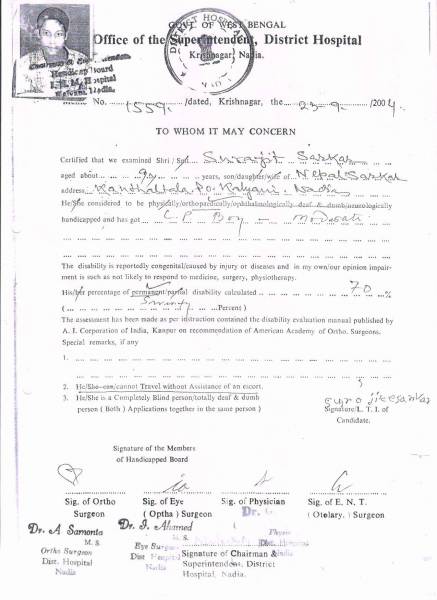 GOVT OF WEST BENGAL
DISTRICT HOSPITAL
Office of the Superintendent, District Hospital
Krishnagar, Nadia.
Handicap Board
Hospital
Nadia.
No. 1559 /dated, Krishnagar, the 23-9- /2004.
TO WHOM IT MAY CONCERN
Certified that we examined Shri / Smt. Surajit Sarkar
aged about years, son/daughter/wife of Nepal Sarkar
address Kanthaltala, P.O. Kalyani, Nadia
He/She considered to be physically/orthopaedically/ophthalmologically deaf & dumb/neurologically
handicapped and has got C.P Boy – Moderate
The disability is reportedly congenital/caused by injury or diseases and in my own/our opinion impair-
ment is such as not likely to respond to medicine, surgery, physiotherapy.
His/her percentage of permanent/partial disability calculated 70 %
( Seventy Percent )
The assessment has been made as per instruction contained the disability evaluation manual published by
A. I. Corporation of India, Kanpur on recommendation of American Academy of Ortho. Surgeons.
Special remarks, if any
1.
2. He/She can/cannot Travel without Assistance of an escort.
3. He/She is a Completely Blind person/totally deaf & dumb
person ( Both ) Applications together in the same person )
Signature/L. T. I. of
Candidate.
Signature of the Members
of Handicapped Board
Sig. of Ortho Sig. of Eye Sig. of Physician Sig. of E. N. T.
Surgeon (Optha) Surgeon Dr. (Otolary. ) Surgeon
Dr. A Samonta Dr. J. Ahamed
M. S. M. S.
Ortho Surgeon Eye Surgeon
Dist. Hospital Dist Hospital
Nadia Nadia
Signature of Chairman &
Superintendent, District
Hospital, Nadia.